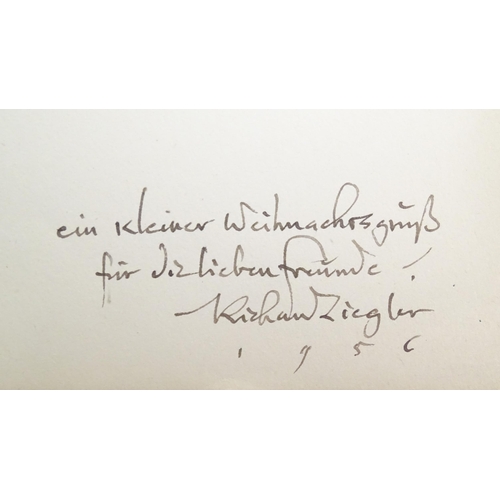 ein kleiner Weihnachtsgruß
für die lieben Freunde!
Richard Ziegler
1956